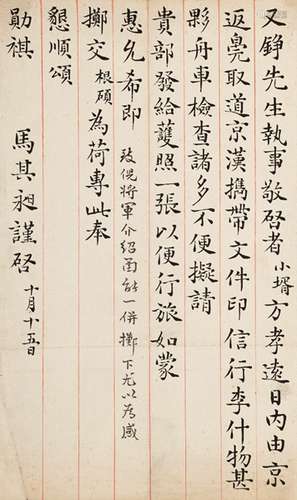 又錚先生執事敬啓者小壻方孝遠日內由京
返皖取道京漢攜帶文件印信行李什物甚
夥舟車檢查諸多不便擬請
貴部發給護照一張以便行旅如蒙
惠允希即
致倪將軍介紹函能一併擲下尤以為感
擲交根碩為荷專此奉
懇順頌
勛祺
馬其昶謹啓
十月十五日